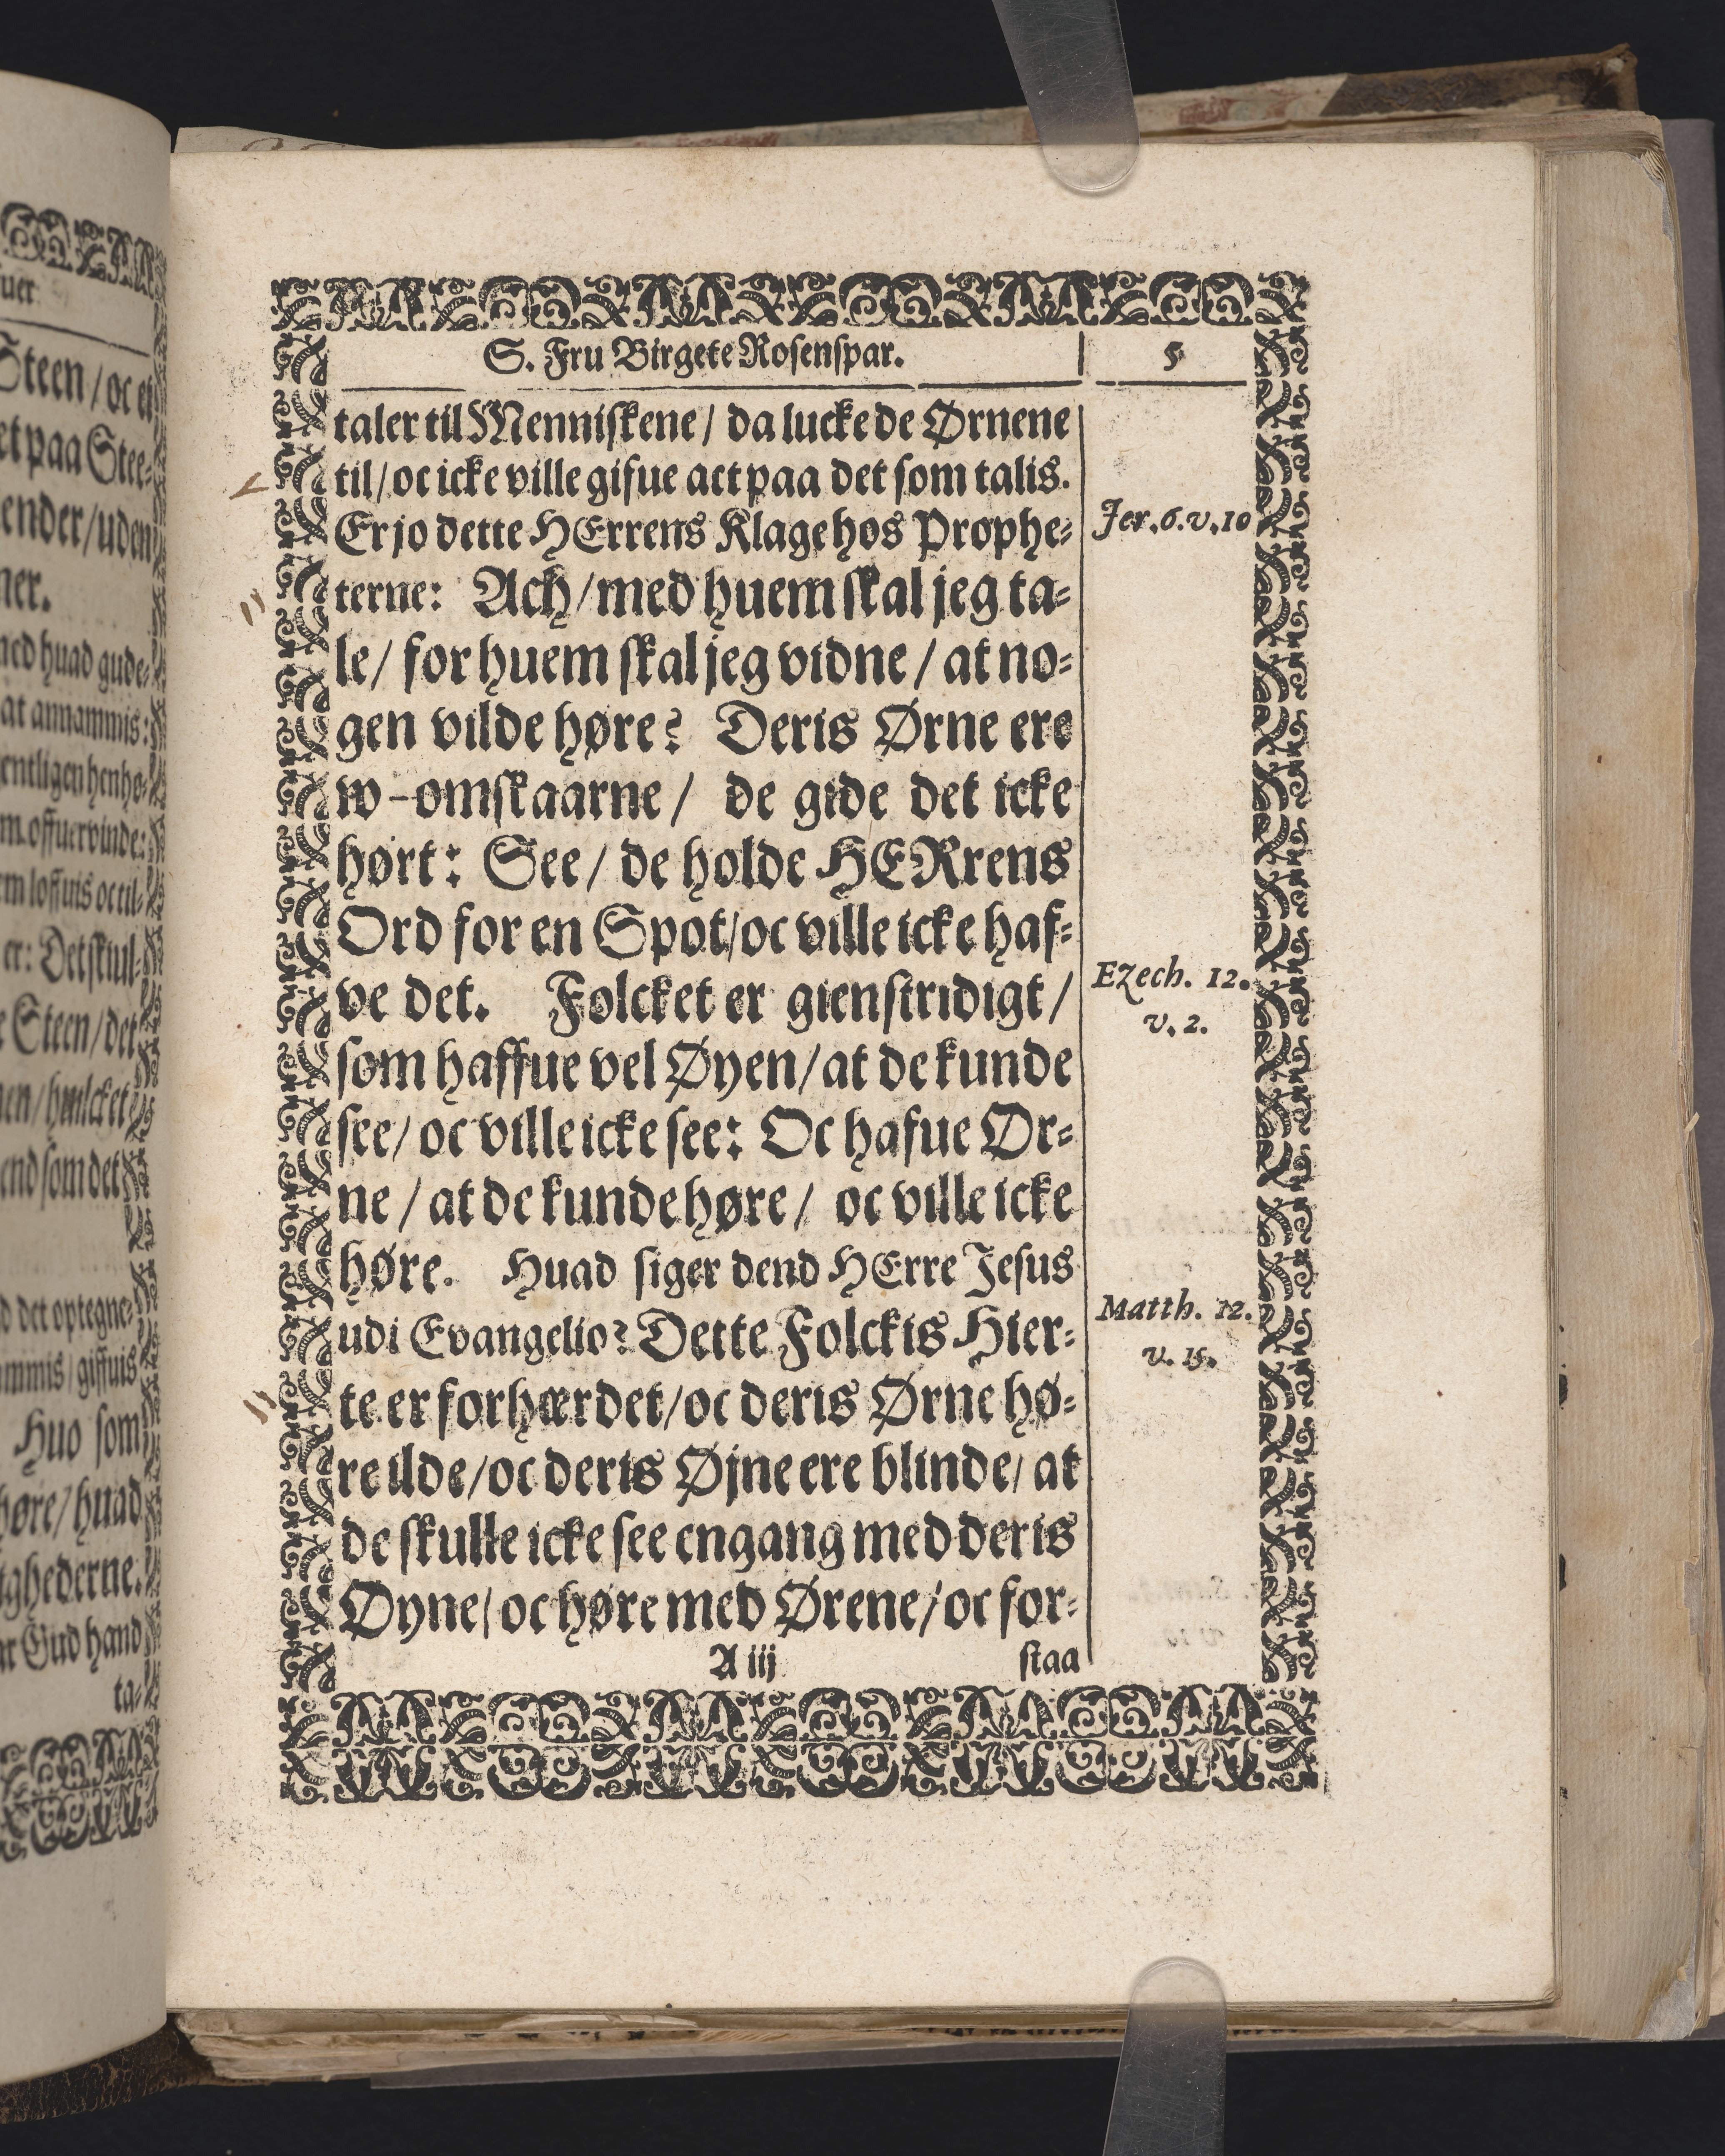 uer
Steen / oc et
et paa Stee-
ender / uden
ner.
med huad gude-
at annammis:
entligen henhø-
m offuervinde:
em loffuis oc til-
er: Det skiul-
e Steen / det
en / huilcket
end som det
d det optegne-
ammis / giffuis
Huo som
høre / huad
ighederne.
ar Gud hand
ta-
S. Fru Birgete Rosenspar. 5
taler til Menniskene / da luckede Ørnene
til / oc icke ville gifue act paa det som talis.
Er jo dette HErrens Klage hos Prophe-
Jer. 6. v. 10
terne: Ach / med huem skal jeg ta-
le / for huem skal jeg vidne / at no-
gen vilde høre? Deris Ørne ere
w-omskaarne / de gide det icke
hørt: See / de holde HERrens
Ord for en Spot / oc ville icke haf-
ve det. Folcket er gienstridigt /
Ezech. 12.
v. 2.
som haffue vel Øyen / at de kunde
see / oc ville icke see: Oc hafue Ør-
ne / at de kunde høre / oc ville icke
høre. Huad siger dend HErre Jesus
udi Evangelio? Dette Folckis Hier-
Matth. 12.
v. 15.
te er forhærdet / oc deris Ørne hø-
re ilde / oc deris Øjne ere blinde / at
de skulle icke see engang med deris
Øyne / oc høre med Ørene / oc for-
A iij staa